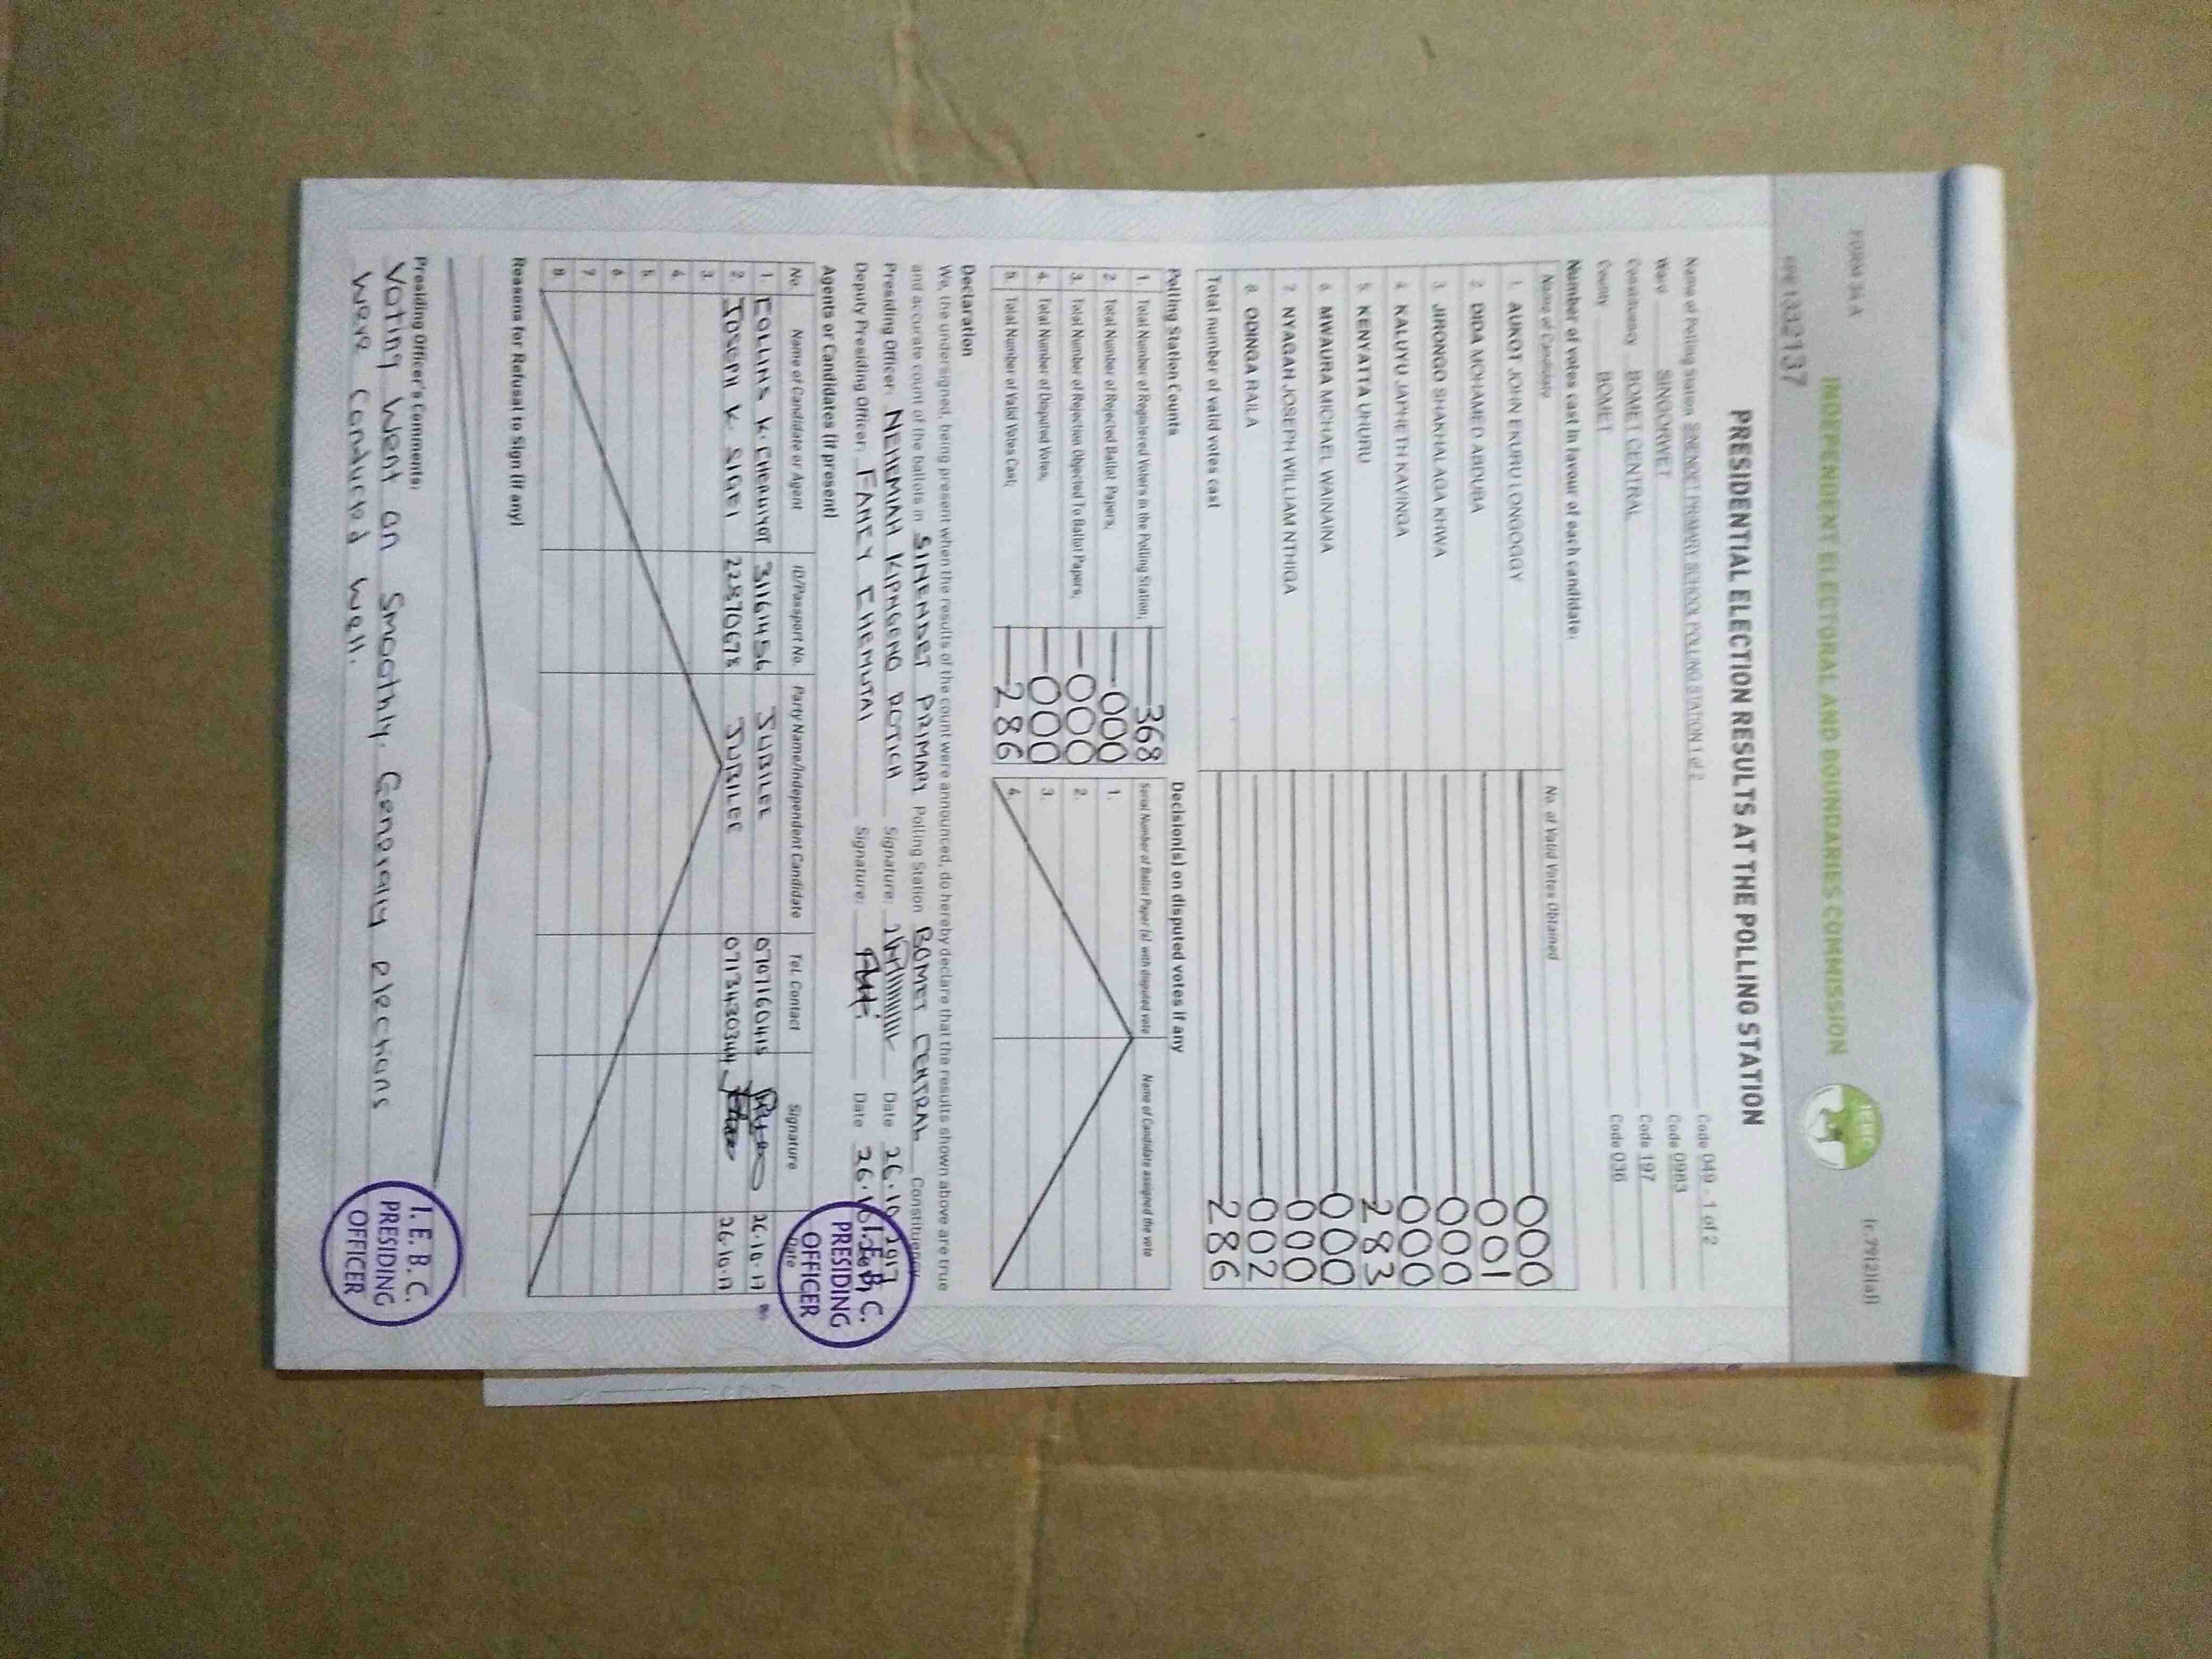 FORM 34A
(r.79(2)(a))
INDEPENDENT ELECTORAL AND BOUNDARIES COMMISSION
IEBC
PRESIDENTIAL ELECTION RESULTS AT THE POLLING STATION
Name of Polling Station SINENDET PRIMARY SCHOOL POLLING STATION 1 of 2 Code 049 - 1 of 2
Ward SINGORWET Code 0983
Constituency BOMET CENTRAL Code 197
County BOMET Code 036
Number of votes cast in favour of each candidate:
Name of Candidate No. of Valid Votes Obtained
1. AUKOT JOHN EKURU LONGOGGY 000
2. DIDA MOHAMED ABDUBA 001
3. JIRONGO SHAKHALAGA KHWA 000
4. KALUYU JAPHETH KAVINGA 000
5. KENYATTA UHURU 283
6. MWAURA MICHAEL WAINAINA 000
7. NYAGAH JOSEPH WILLIAM NTHIGA 000
8. ODINGA RAILA 002
Total number of valid votes cast 286
Polling Station Counts
1. Total Number of Registered Voters in the Polling Station; 368
2. Total Number of Rejected Ballot Papers; 000
3. Total Number of Rejection Objected To Ballot Papers; 000
4. Total Number of Disputed Votes; 000
5. Total Number of Valid Votes Cast; 286
Decision(s) on disputed votes if any
Serial Number of Ballot Paper (s) with disputed vote Name of Candidate assigned the vote
1.
2.
3.
4.
Declaration
We, the undersigned, being present when the results of the count were announced, do hereby declare that the results shown above are true
and accurate count of the ballots in SINENDET PRIMARY Polling Station BOMET CENTRAL Constituency
Presiding Officer: NEHEMIAH KIPNGENO ROTICH Signature: Date 26.10.2017
Deputy Presiding Officer: FANCY CHEMUTAI Signature: Date 26.10.2017
I. E. B. C.
PRESIDING
OFFICER
Agents or Candidates (if present)
No. Name of Candidate or Agent ID/Passport No. Party Name/Independent Candidate Tel. Contact Signature Date
1. COLLINS K. CHERUIYOT 31161456 JUBILEE 0707160415 26.10.17
2. JOSEPH K. SIGEI 22870678 JUBILEE 0713430344 26.10.17
3.
4.
5.
6.
7.
8.
Reasons for Refusal to Sign (if any)
Presiding Officer's Comments:
Voting went on smoothly. Generally elections
were conducted well.
I. E. B. C.
PRESIDING
OFFICER